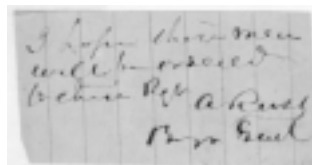 I hope these men
will be ordered
to their Regt
A
Brig Genl